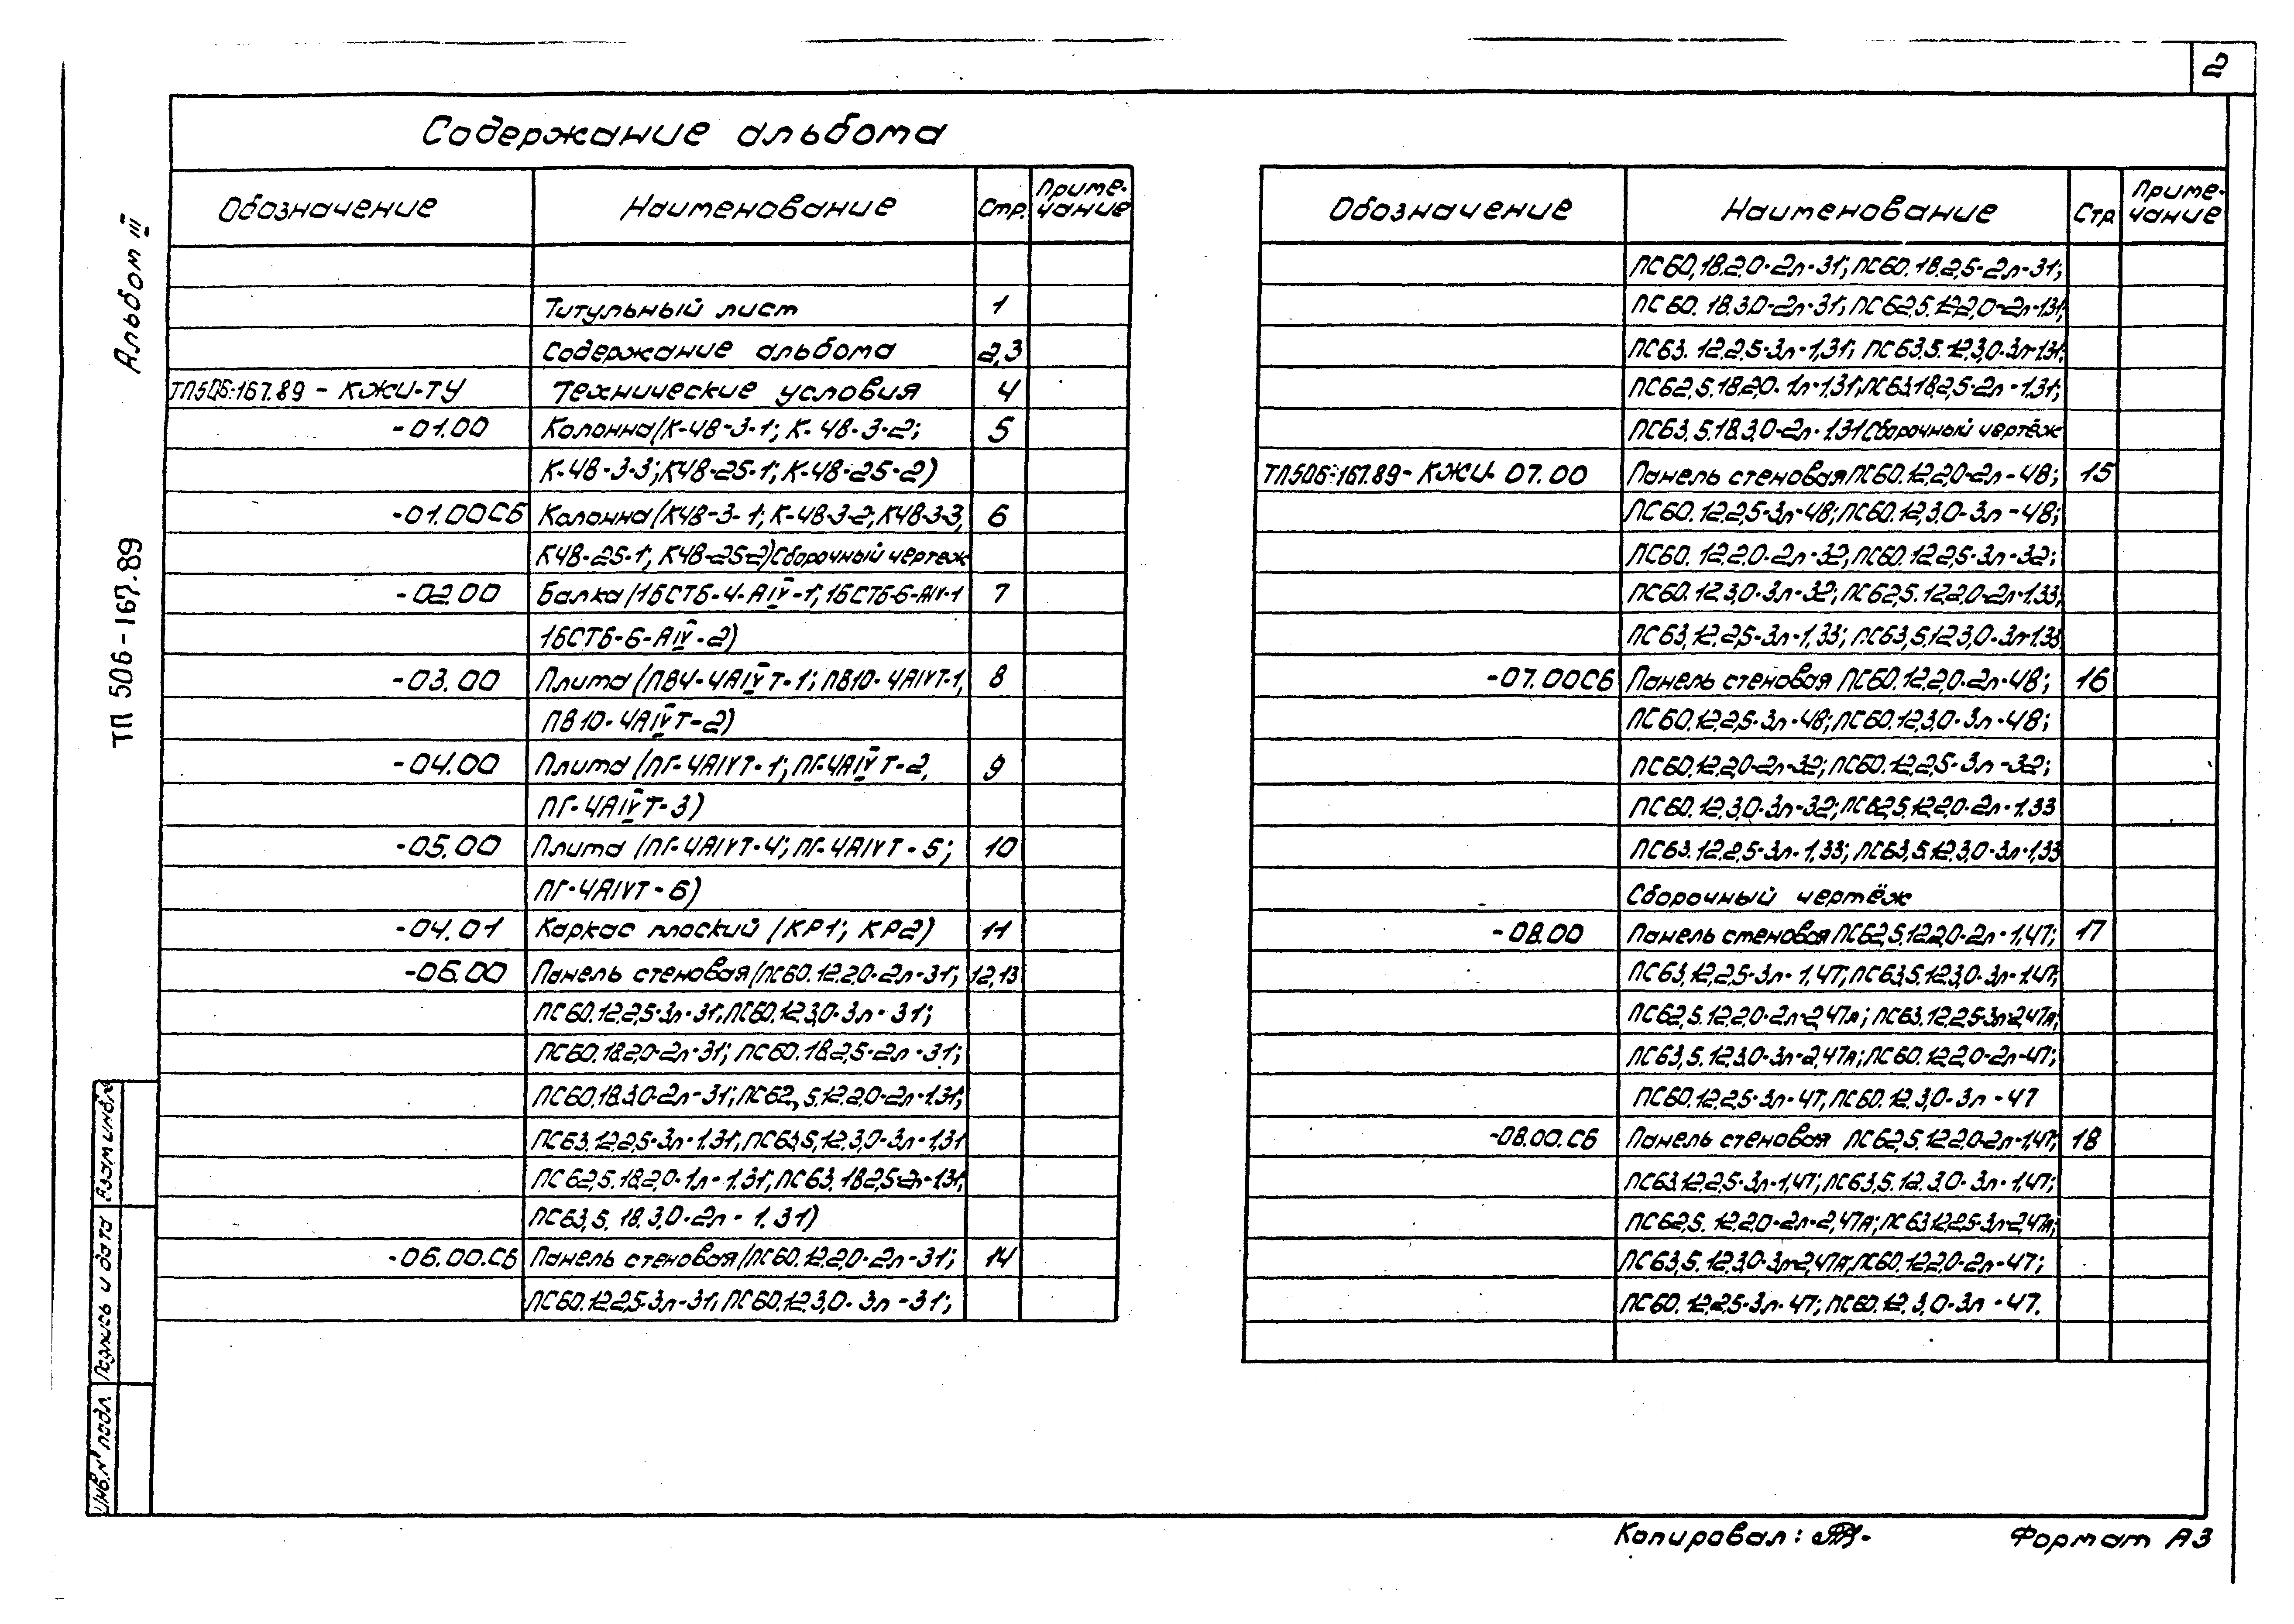 2
Содержание альбома
Альбом III
ТП 506-167.89
Обозначение Наименование Стр. Приме-чание
Титульный лист 1
Содержание альбома 2,3
ТП506-167.89 - КЖИ-ТУ Технические условия 4
-01.00 Колонна (К-48-3-1; К-48-3-2; 5
К-48-3-3; К48-25-1; К-48-25-2)
-01.00СБ Колонна (К48-3-1; К-48-3-2; К48-3-3, 6
К48-25-1, К48-25-2) Сборочный чертеж
-02.00 Балка (1БСТ6-4-АIV-1; 1БСТ6-6-АIV-1 7
1БСТ6-6-АIV-2)
-03.00 Плита (ПВ4-4АIVТ-1; ПВ10-4АIVТ-1, 8
ПВ10-4АIVТ-2)
-04.00 Плита (ПГ-4АIVТ-1; ПГ-4АIVТ-2, 9
ПГ-4АIVТ-3)
-05.00 Плита (ПГ-4АIVТ-4; ПГ-4АIVТ-5; 10
ПГ-4АIVТ-6)
-04.01 Каркас плоский (КР1; КР2) 11
-06.00 Панель стеновая (ПС60.12.2,0-2л-31; 12,13
ПС60.12.2,5-3л-31; ПС60.12.3,0-3л-31;
ПС60.18.2,0-2л-31; ПС60.18.2,5-2л-31;
ПС60.18.3,0-2л-31; ПС62,5.12.2,0-2л-1.31;
ПС63.12.2,5-3л-1.31; ПС63,5.12.3,0-3л-1.31
ПС62,5.18.2,0-1л-1.31; ПС63.18.2,5-2л-1.31;
ПС63,5.18.3,0-2л-1.31)
-06.00.СБ Панель стеновая (ПС60.12.2,0-2л-31; 14
ПС60.12.2,5-3л-31; ПС60.12.3,0-3л-31;
Обозначение Наименование Стр Приме-чание
ПС60.18.2.0-2л-31; ПС60.18.2,5-2л-31;
ПС60.18.3.0-2л-31; ПС62,5.12.2,0-2л-1.31;
ПС63.12.2,5-3л-1,31; ПС63,5.12.3,0-3л-1.31;
ПС62,5.18.2,0-1л-1.31; ПС63.18.2,5-2л-1.31;
ПС63,5.18.3,0-2л-1.31 Сборочный чертёж
ТП506-167.89-КЖИ-07.00 Панель стеновая ПС60.12.2,0-2л-48; 15
ПС60.12.2,5-3л-48; ПС60.12.3,0-3л-48;
ПС60.12.2,0-2л-32; ПС60.12.2,5-3л-32;
ПС60.12.3,0-3л-32; ПС62,5.12.2,0-2л-1.33;
ПС63.12.2,5-3л-1,33; ПС63,5.12.3,0-3л-1.33
-07.00СБ Панель стеновая ПС60.12.2,0-2л-48; 16
ПС60.12.2,5-3л-48; ПС60.12.3,0-3л-48;
ПС60.12.2,0-2л-32; ПС60.12.2,5-3л-32;
ПС60.12.3,0-3л-32; ПС62,5.12.2,0-2л-1.33
ПС63.12.2,5-3л-1,33; ПС63,5.12.3,0-3л-1,33
Сборочный чертёж
-08.00 Панель стеновая ПС62,5.12.2,0-2л-1,47; 17
ПС63.12.2,5-3л-1,47; ПС63,5.12.3,0-3л-1.47;
ПС62,5.12.2,0-2л-2,47А; ПС63.12.2,5-3л-2,47А;
ПС63,5.12.3,0-3л-2,47А; ПС60.12.2,0-2л-47;
ПС60.12.2,5-3л-47; ПС60.12.3,0-3л-47
-08.00.СБ Панель стеновая ПС62,5.12.2,0-2л-1,47; 18
ПС63.12.2,5-3л-1,47; ПС63,5.12.3,0-3л-1,47;
ПС62,5.12.2,0-2л-2,47А; ПС63.12.2,5-3л-2,47А;
ПС63,5.12.3,0-3л-2,47А; ПС60.12.2,0-2л-47;
ПС60.12.2,5-3л-47; ПС60.12.3,0-3л-47.
Взам инв.№
Подпись и дата
Инв.№ подл.
Копировал:
Формат А3